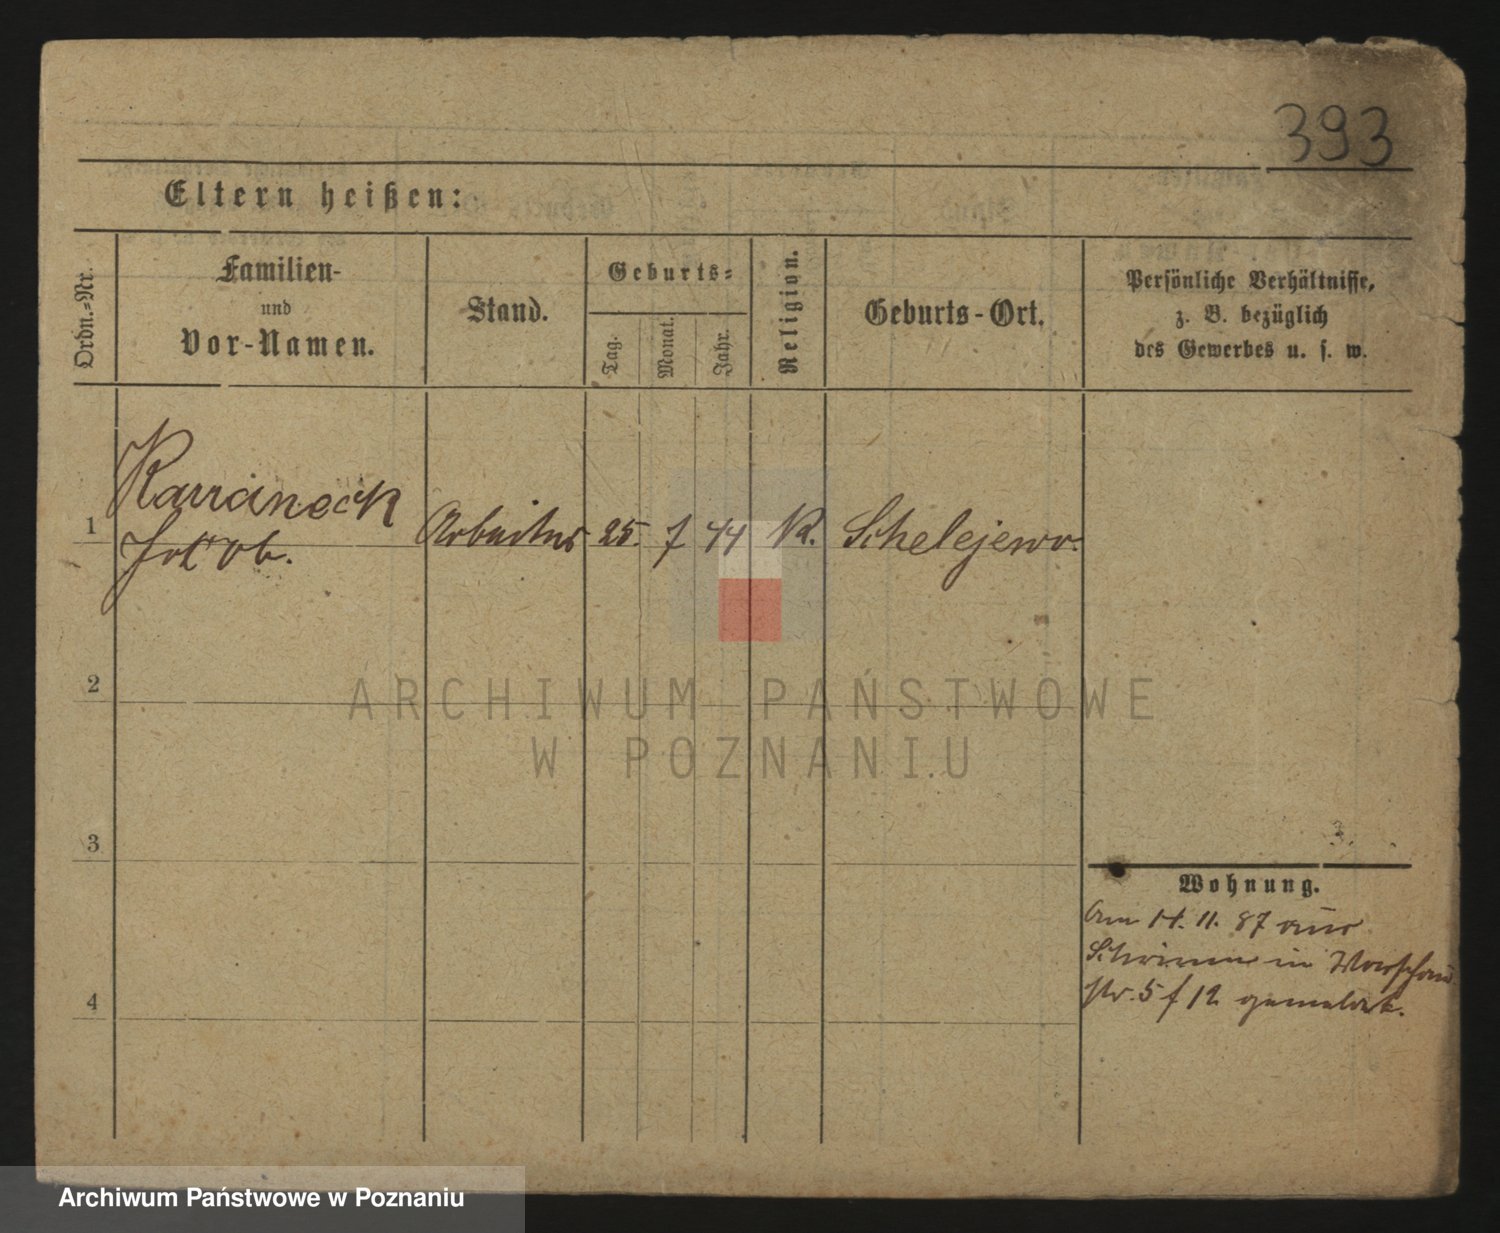 393
Eltern heißen:
Ordn.-Nr.
Familien-
und
Vor-Namen.
Stand.
Geburts-
Tag.
Monat.
Jahr.
Religion.
Geburts-Ort.
Persönliche Verhältnisse,
z. B. bezüglich
des Gewerbes u. s. w.
1
Jakob.
Arbeiter
25. 7 44 K. Schelejewo.
2
3
4
Wohnung.
Am 14. 11. 87 aus
in Warschau
str. 5 f 12 gemeldet.
ARCHIWUM PAŃSTWOWE
W POZNANIU
Archiwum Państwowe w Poznaniu